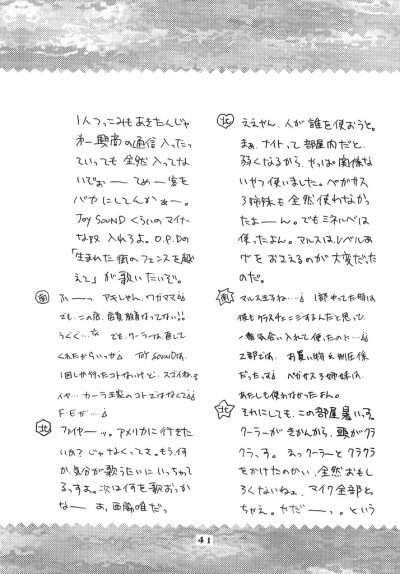 北 ええやん、人が誰を使おうと。
まぁ、ナイトって部屋内だと、
弱くなるから、やっぱ関係な
いやつ使いました。ペガサス
3姉妹も全然使わなかっ
たよーん。でもミネルバは
使ったよん。マルスはレベルあ
げをおさえるのが大変だった
のだ。
マルス王子ね…¡ 1部やってた時は
一番気合い入れて使ったのに…¡
2部では、お買い物&
だったっす¡ ペガサス3姉妹は、
あたしも使わなかったもん。
北 それにしても、この部屋暑いっす。
クーラーがきかんから、頭がクラ
クラっす。えっクーラーとクラクラ
をかけたのかい、全然おもし
ろくないねェ、マイク全部とっ
ちゃえ。やだーっ。という
1人つっこみもあきたんじゃ
第一興商の通信入ったっ
ていっても全然入ってな
いでぉー てめー客を
バカにしてんかぁー。
JOY SOUNDくらいのマイナー
な奴入れろよ。O.P.Dの
「生まれた街のフェンスを越
えて」が歌いたいぞ。
ふーっ アキしゃん、ワガママ¡¡
でも、この店、
うぐぐ…。でも、クーラーは直して
くれたからいっか¡ JOY SOUNDは、
1回しか行ったコトないけど、スゴイね。
イヤ…カーラ王家のコトではなくて¡¡
F・Eが…¡
北 ファイヤーッ。アメリカに行きた
いか?じゃなくってさ。もう、何
か、気分が歌うたいにいっちゃて
るっすよ。次は何を歌おっか
なー あ、西脇唯だっ。
41